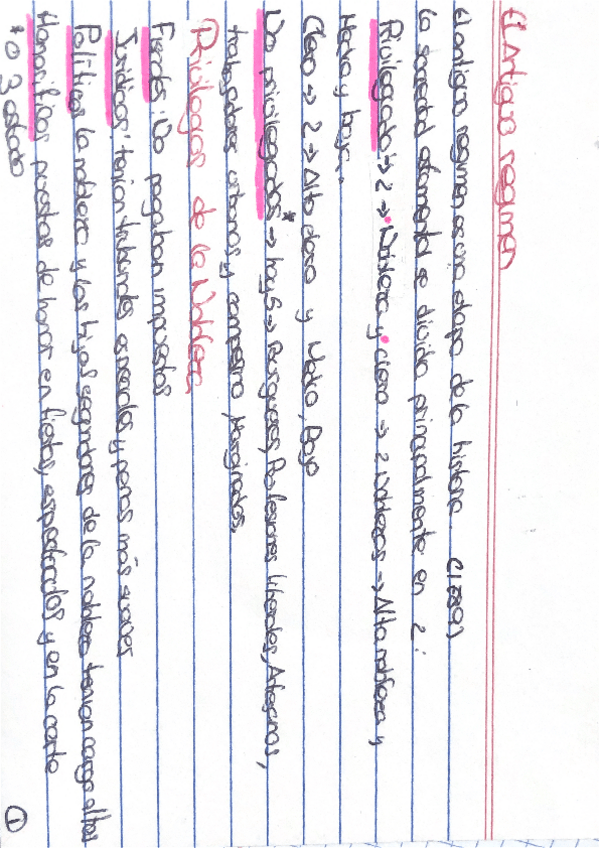 El Antiguo regimen
El antiguo regimen es una etapa de la historia
La sociedad estamental se divide principalmente en 2:
Privilegiada → 2 → Nobleza y clero → 2 noblezas → Alta nobleza y
Media y baja.
Clero → 2 → Alto clero y Medio, Bajo
No privilegiados* → hay 5 → Burgueses, Profesiones Liberales, Artesanos,
trabajadores urbanos y campesino, Marginados.
Privilegios de la Nobleza
Fiscales No pagaban impuestos
Jurídicos: tenían tribunales especiales y penas más suaves
Políticos la nobleza y los hijos segundones de la nobleza tenían cargo altos
Honoríficos puestos de honor en fiestas, espectaculos y en la corte
* o 3 estado
1